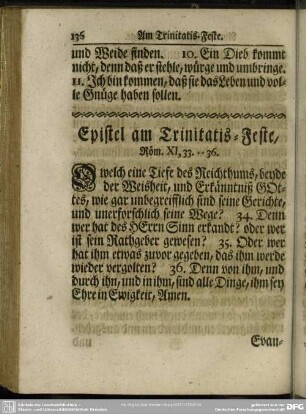 136 Am Trinitatis-Feste.
und Weide finden. 10. Ein Dieb kommt
nicht, denn daß er stehle, würge und umbringe.
11. Ich bin kommen, daß sie das Leben und vol-
le Gnüge haben sollen.
Epistel am Trinitatis-Feste,
Röm. XI, 33. -- 36.
O welch eine Tiefe des Reichthums, beyde
der Weisheit, und Erkänntniß GOt-
tes, wie gar unbegreifflich sind seine Gerichte,
und unerforschlich seine Wege? 34. Denn
wer hat des HErrn Sinn erkandt? oder wer
ist sein Rathgeber gewesen? 35. Oder wer
hat ihm etwas zuvor gegeben, das ihm werde
wieder vergolten? 36. Denn von ihm, und
durch ihn, und in ihm, sind alle Dinge, ihm sey
Ehre in Ewigkeit, Amen.
Evan-